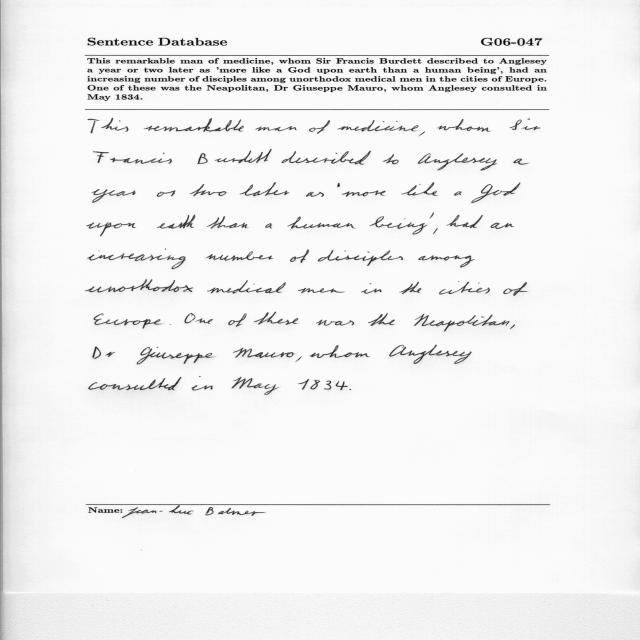 Sentence Database G06-047
This remarkable man of medicine, whom Sir Francis Burdett described to Anglesey
a year or two later as 'more like a God upon earth than a human being', had an
increasing number of disciples among unorthodox medical men in the cities of Europe.
One of these was the Neapolitan, Dr Giuseppe Mauro, whom Anglesey consulted in
May 1834.
This remarkable man of medicine, whom Sir
Francis Burdett described to Anglesey a
year or two later as 'more like a God
upon earth than a human being', had an
increasing number of disciples among
unorthodox medical men in the cities of
Europe. One of these was the Neapolitan,
Dr Giuseppe Mauro, whom Anglesey
consulted in May 1834.
Name: Jean-Luc